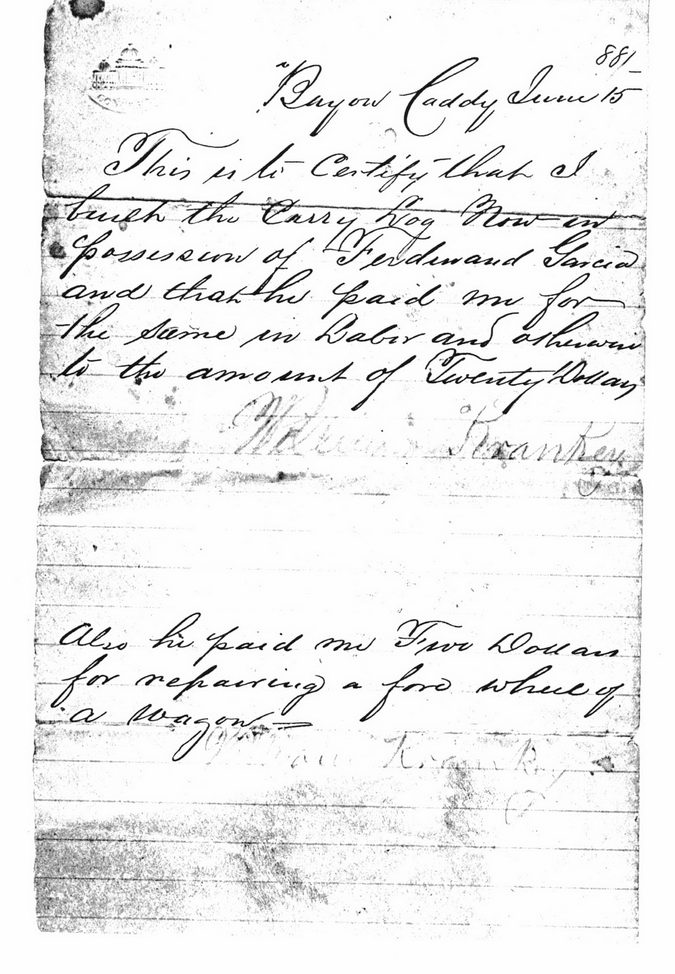 881
Bayou Caddy June 15
This is to Certify that I
built the Carry Log Now in
possession of Ferdinand Garcia
and that he paid me for
the same in Labor and otherwise
to the amount of Twenty Dollars
William Krankey
Also he paid me Two Dollars
for repairing a fore wheel of
a wagon
Krankey